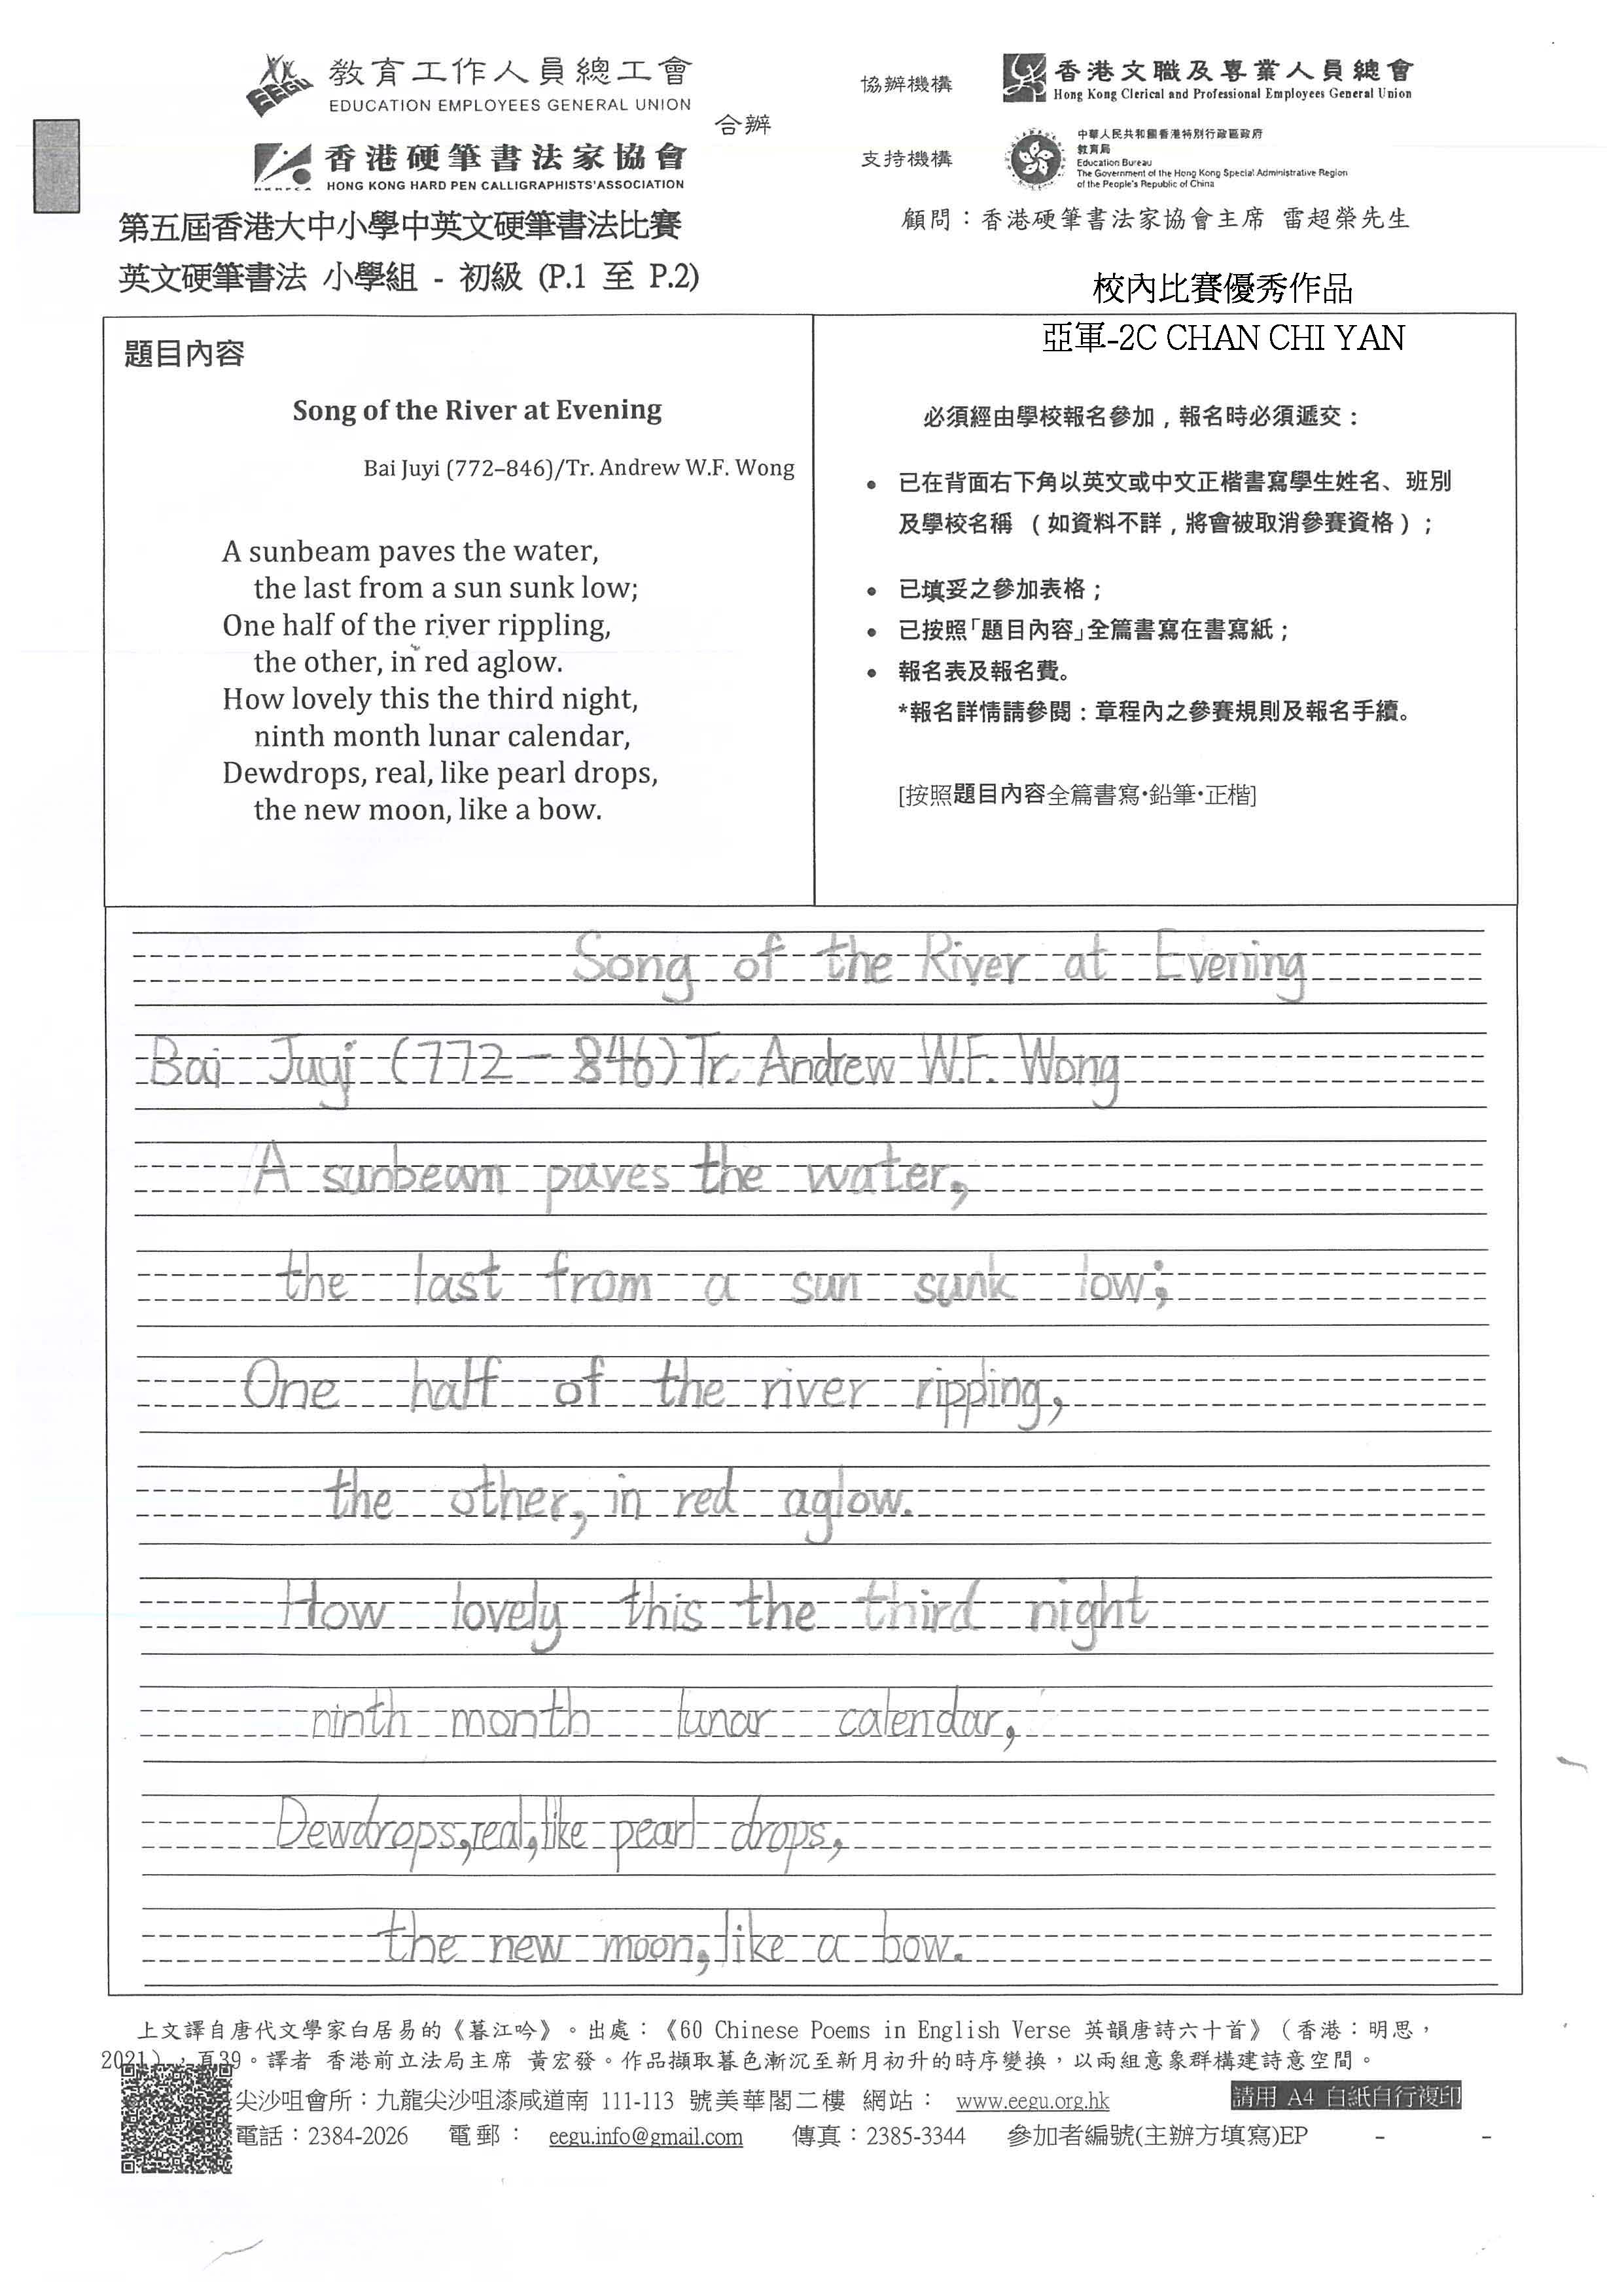 教育工作人員總工會
EDUCATION EMPLOYEES GENERAL UNION
香港硬筆書法家協會
HONG KONG HARD PEN CALLIGRAPHISTS'ASSOCIATION
合辦
協辦機構
香港文職及專業人員總會
Hong Kong Clerical and Professional Employees General Union
支持機構
中華人民共和國香港特別行政區政府
教育局
Education Bureau
The Government of the Hong Kong Special Administrative Region
of the People's Republic of China
第五屆香港大中小學中英文硬筆書法比賽
顧問：香港硬筆書法家協會主席 雷超榮先生
英文硬筆書法 小學組 - 初級 (P.1 至 P.2)
校內比賽優秀作品
亞軍-2C CHAN CHI YAN
題目內容
Song of the River at Evening
Bai Juyi (772–846)/Tr. Andrew W.F. Wong
A sunbeam paves the water,
the last from a sun sunk low;
One half of the river rippling,
the other, in red aglow.
How lovely this the third night,
ninth month lunar calendar,
Dewdrops, real, like pearl drops,
the new moon, like a bow.
必須經由學校報名參加，報名時必須遞交：
• 已在背面右下角以英文或中文正楷書寫學生姓名、班別
及學校名稱 （如資料不詳，將會被取消參賽資格）；
• 已填妥之參加表格；
• 已按照「題目內容」全篇書寫在書寫紙；
• 報名表及報名費。
*報名詳情請參閱：章程內之參賽規則及報名手續。
[按照題目內容全篇書寫‧鉛筆‧正楷]
Song of the River at Evening
Bai Juyi (772 – 846) Tr. Andrew W.F. Wong
A sunbeam paves the water,
the last from a sun sunk low;
One half of the river rippling,
the other, in red aglow.
How lovely this the third night
ninth month lunar calendar,
Dewdrops, real, like pearl drops,
the new moon, like a bow.
上文譯自唐代文學家白居易的《暮江吟》。出處：《60 Chinese Poems in English Verse 英韻唐詩六十首》（香港：明思，
2021），頁39。譯者 香港前立法局主席 黃宏發。作品擷取暮色漸沉至新月初升的時序變換，以兩組意象群構建詩意空間。
尖沙咀會所：九龍尖沙咀漆咸道南 111-113 號美華閣二樓 網站： www.eegu.org.hk
請用 A4 白紙自行複印
電話：2384-2026 電郵： eegu.info@gmail.com 傳真：2385-3344 參加者編號(主辦方填寫)EP - -